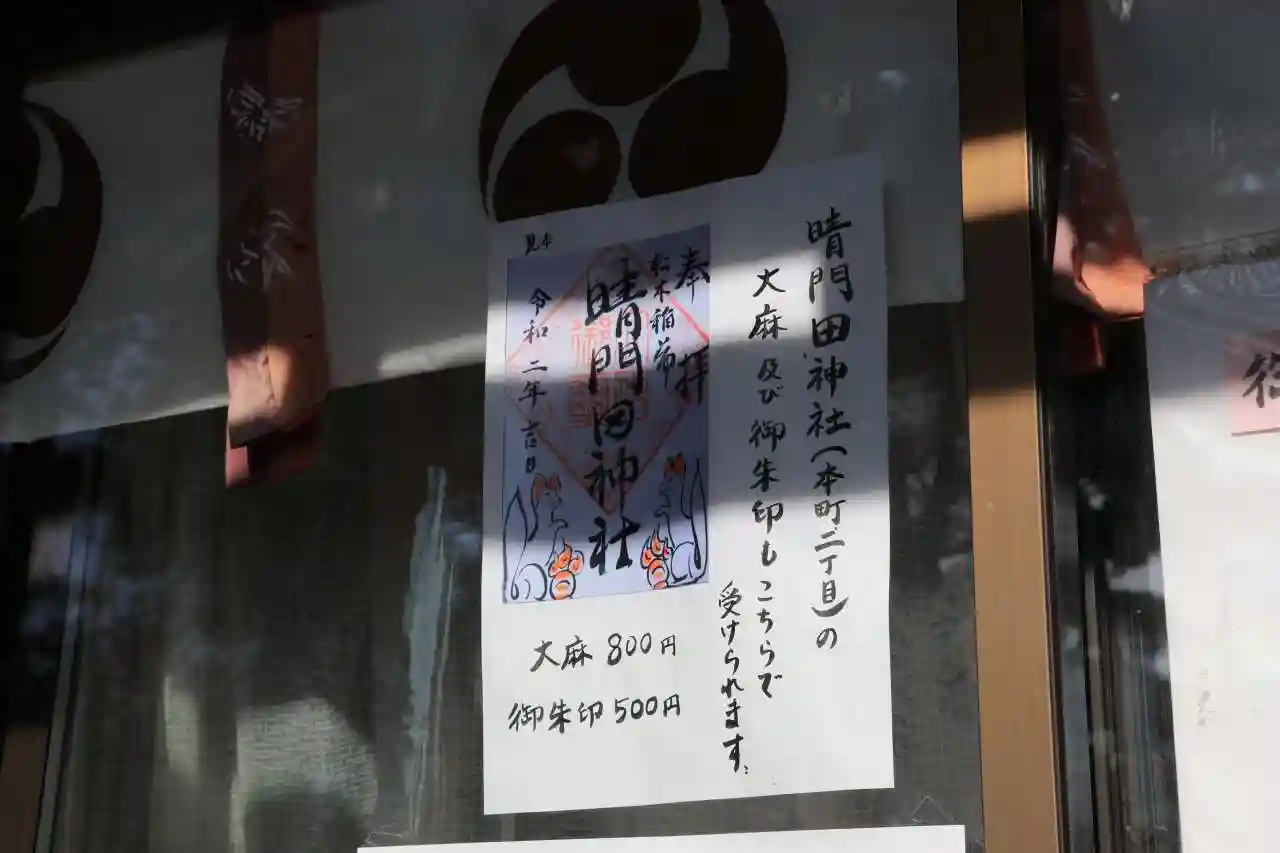 晴門田神社(本町二丁目)の
大麻及び御朱印もこちらで
受けられます。
見本
奉拝
松木稲荷
晴門田神社
令和二年吉日
大麻 800円
御朱印 500円